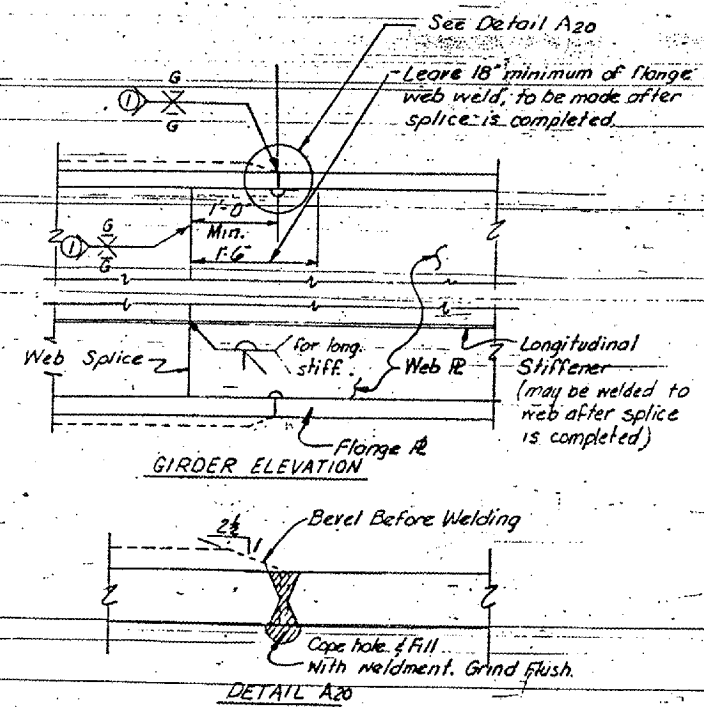 See Detail A20
Leave 18" minimum of flange
web weld, to be made after
splice is completed.
G
1
G
1'-0"
Min.
1'-6"
G
1
G
for long.
stiff.
Web Splice
Web PL
Longitudinal
Stiffener
(may be welded to
web after splice
is completed)
Flange PL
GIRDER ELEVATION
2½
1
Bevel Before Welding
Cope hole & Fill
with weldment. Grind Flush.
DETAIL A20